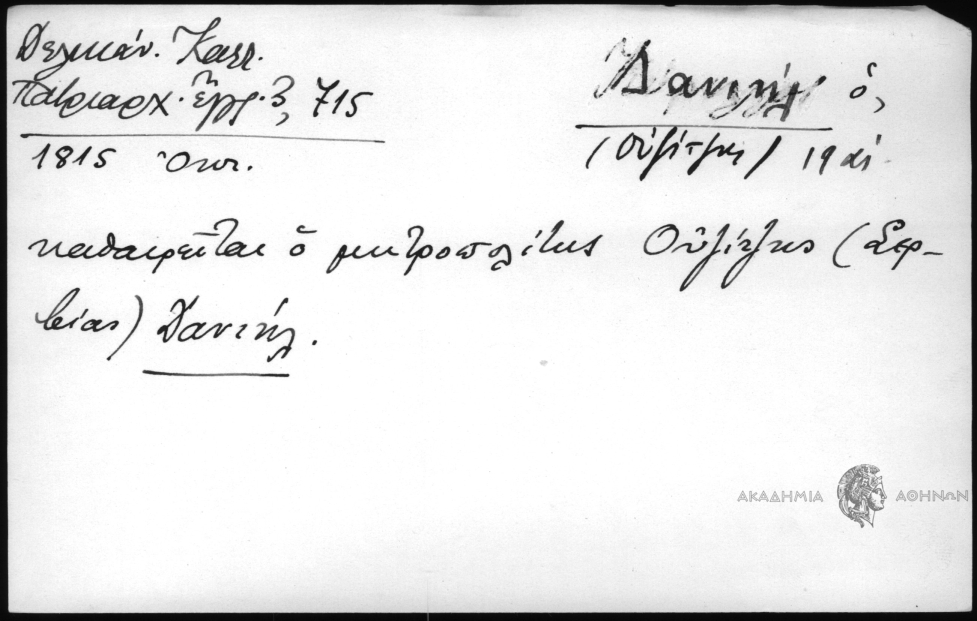 Δελικάν. Καλλ.
Πατριαρχ. ἔγγρ. 3, 715
1815 Ὀκτ.
Δανιήλ ὁ,
(Οὐζίτζης) 19 αἰ.
καθαιρεῖται ὁ μητροπολίτης Οὐζίτζης (Σερ-
βίας) Δανιήλ.
ΑΚΑΔΗΜΙΑ ΑΘΗΝΩΝ